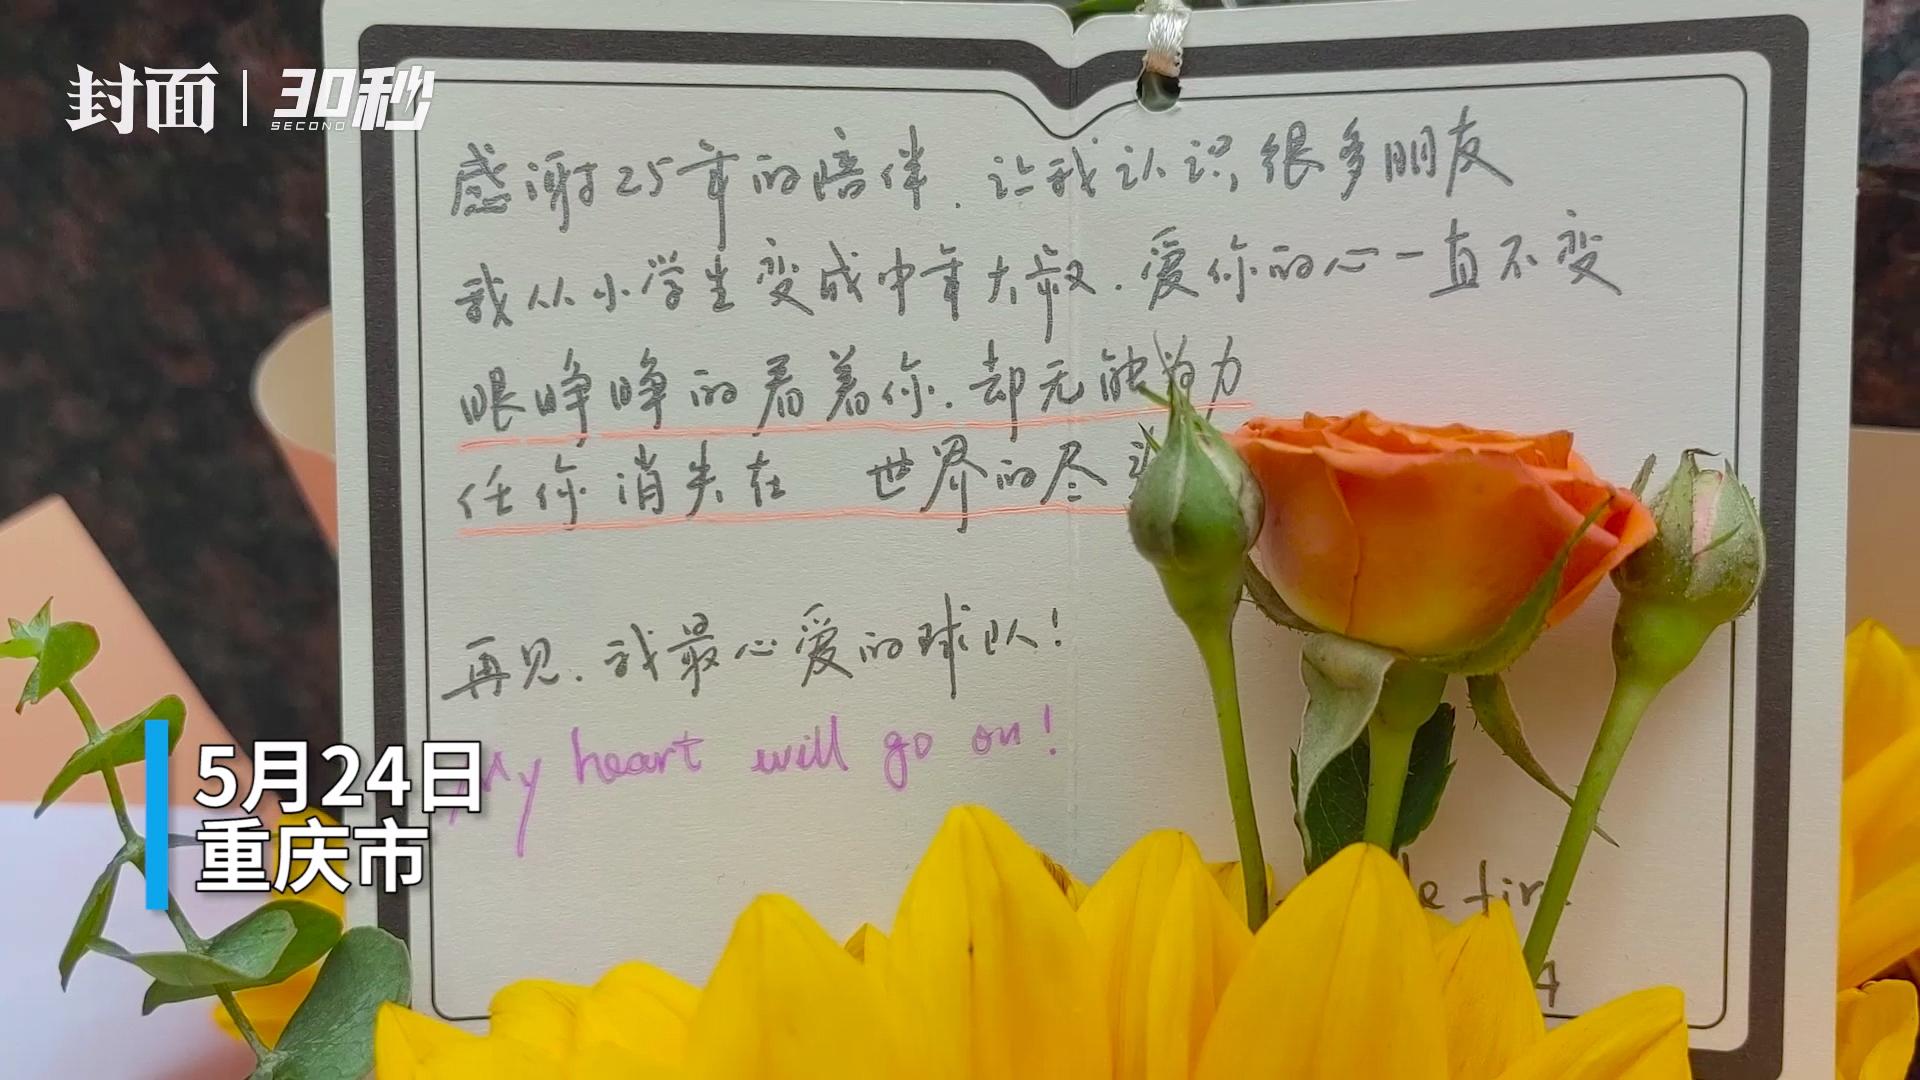 封面 | 30秒
SECOND
感谢25年的陪伴.让我认识很多朋友
我从小学生变成中年大叔.爱你的心一直不变
眼睁睁的看着你.却无能为力
任你消失在 世界的尽
再见.我最心爱的球队!
My heart will go on!
5月24日
重庆市